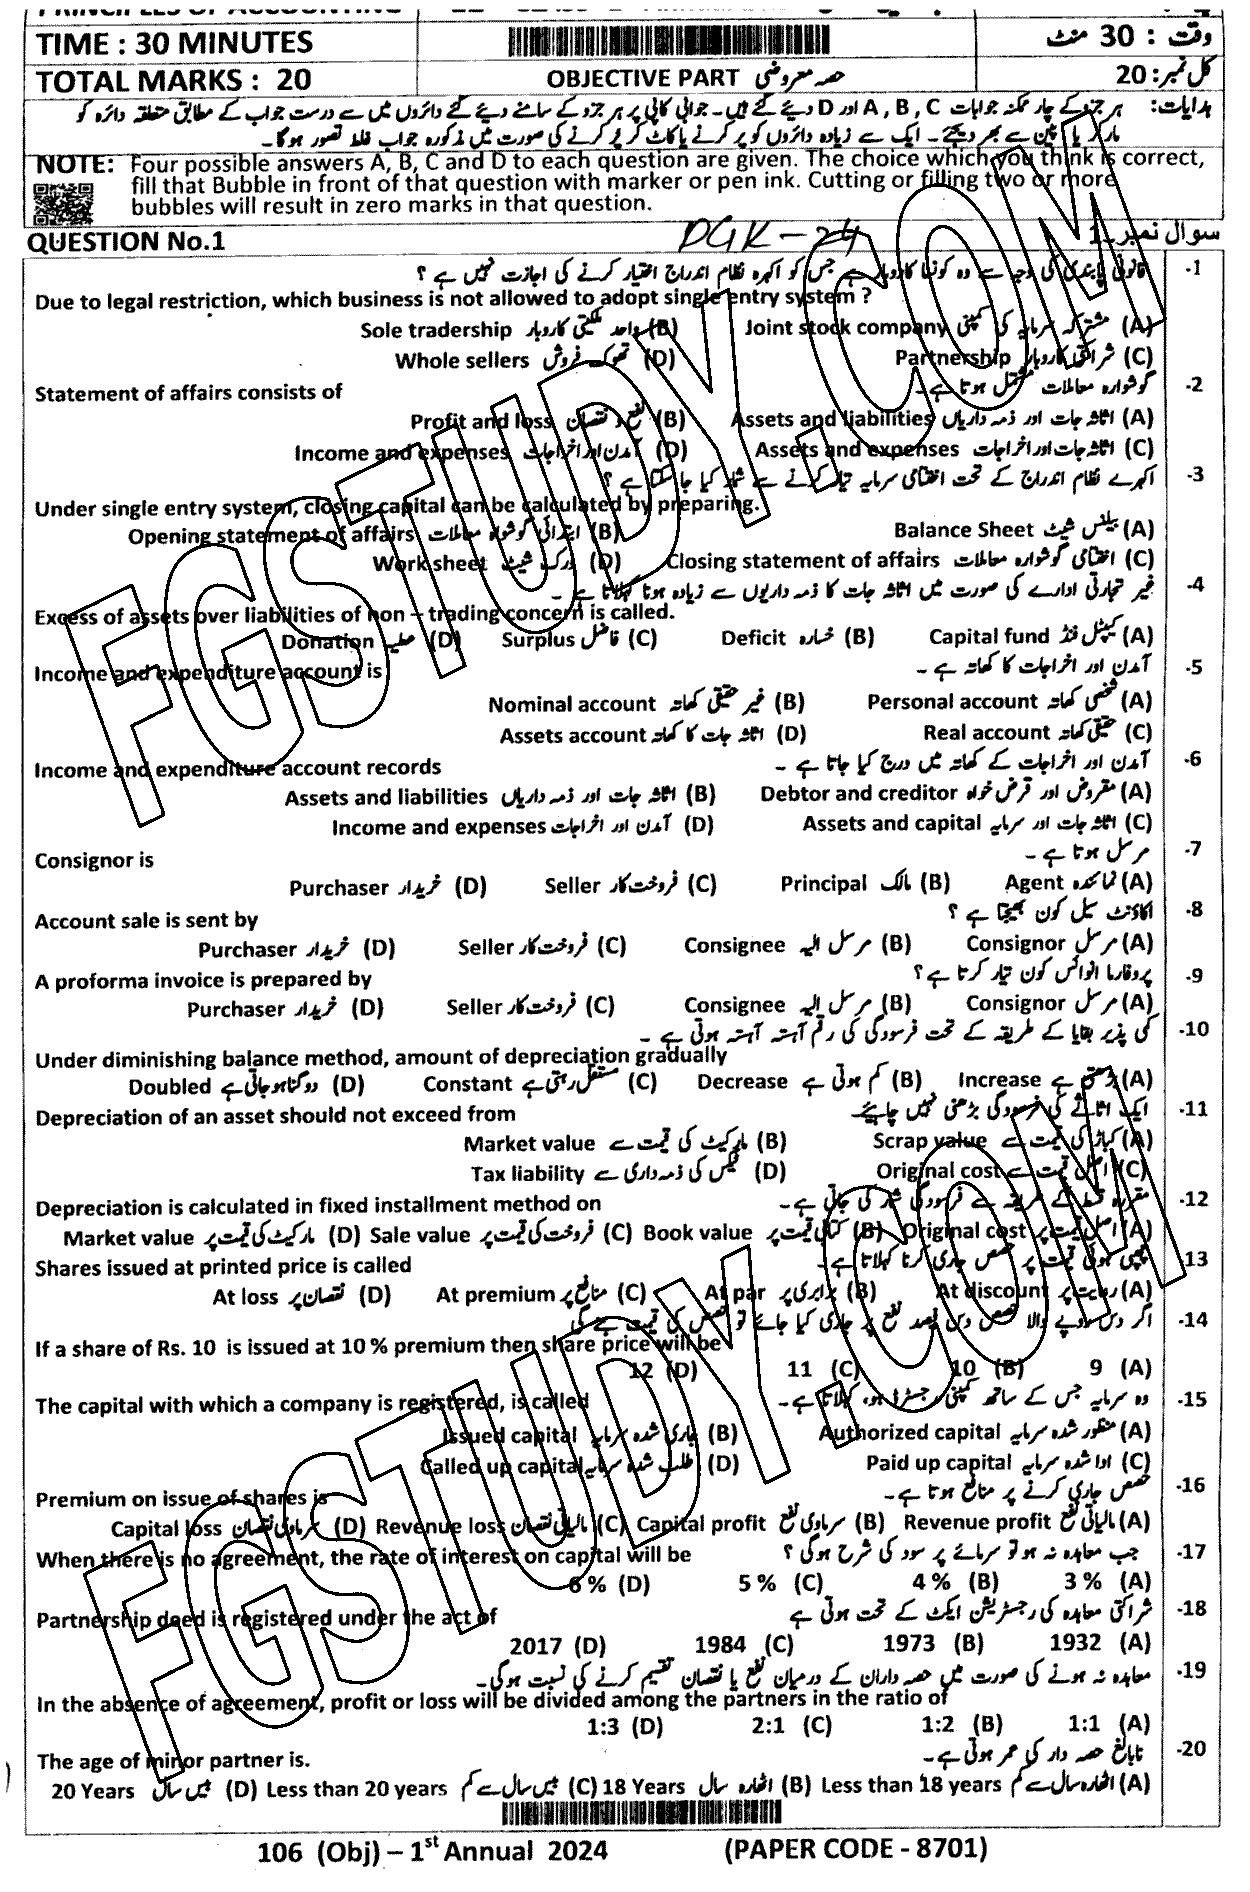 TIME : 30 MINUTES
وقت : 30 منٹ
TOTAL MARKS : 20
OBJECTIVE PART حصہ معروضی
کل نمبر: 20
ہدایات: ہر جزو کے چار ممکنہ جوابات A , B , C اور D دیئے گئے ہیں۔ جوابی کاپی پر ہر جزو کے سامنے دیئے گئے دائروں میں سے درست جواب کے مطابق متعلقہ دائرہ کو
مارکر یا پین سے بھر دیجئے۔ ایک سے زیادہ دائروں کو پر کرنے یا کاٹ کر پر کرنے کی صورت میں مذکورہ جواب غلط تصور ہوگا۔
NOTE: Four possible answers A, B, C and D to each question are given. The choice which you think is correct,
fill that Bubble in front of that question with marker or pen ink. Cutting or filling two or more
bubbles will result in zero marks in that question.
DGK-24
QUESTION No.1
سوال نمبر۔1
-1 قانونی پابندی کی وجہ سے وہ کونسا کاروبار ہے جس کو اکہرہ نظام اندراج اختیار کرنے کی اجازت نہیں ہے ؟
Due to legal restriction, which business is not allowed to adopt single entry system ?
(A) مشترکہ سرمایہ کی کمپنی Joint stock company (B) واحد ملکیتی کاروبار Sole tradership
(C) شراکتی کاروبار Partnership (D) تھوک فروش Whole sellers
-2 گوشوارہ معاملات مشتمل ہوتا ہے۔
Statement of affairs consists of
(A) اثاثہ جات اور ذمہ داریاں Assets and liabilities (B) نفع و نقصان Profit and loss
(C) اثاثہ جات اور اخراجات Assets and expenses (D) آمدن اور اخراجات Income and expenses
-3 اکہرے نظام اندراج کے تحت اختتامی سرمایہ تیار کرنے سے شمار کیا جا سکتا ہے ؟
Under single entry system, closing capital can be calculated by preparing.
(A) بیلنس شیٹ Balance Sheet (B) ابتدائی گوشوارہ معاملات Opening statement of affairs
(C) اختتامی گوشوارہ معاملات Closing statement of affairs (D) ورک شیٹ Work sheet
-4 غیر تجارتی ادارے کی صورت میں اثاثہ جات کا ذمہ داریوں سے زیادہ ہونا کہلاتا ہے ۔
Excess of assets over liabilities of non – trading concern is called.
(A) کیپٹل فنڈ Capital fund (B) خسارہ Deficit (C) فاضل Surplus (D) عطیہ Donation
-5 آمدن اور اخراجات کا کھاتہ ہے ۔
Income and expenditure account is
(A) شخصی کھاتہ Personal account (B) غیر حقیقی کھاتہ Nominal account
(C) حقیقی کھاتہ Real account (D) اثاثہ جات کا کھاتہ Assets account
-6 آمدن اور اخراجات کے کھاتہ میں درج کیا جاتا ہے ۔
Income and expenditure account records
(A) مقروض اور قرض خواہ Debtor and creditor (B) اثاثہ جات اور ذمہ داریاں Assets and liabilities
(C) اثاثہ جات اور سرمایہ Assets and capital (D) آمدن اور اخراجات Income and expenses
-7 مرسل ہوتا ہے ۔
Consignor is
(A) نمائندہ Agent (B) مالک Principal (C) فروخت کار Seller (D) خریدار Purchaser
-8 اکاؤنٹ سیل کون بھیجتا ہے ؟
Account sale is sent by
(A) مرسل Consignor (B) مرسل الیہ Consignee (C) فروخت کار Seller (D) خریدار Purchaser
-9 پروفارما انوائس کون تیار کرتا ہے ؟
A proforma invoice is prepared by
(A) مرسل Consignor (B) مرسل الیہ Consignee (C) فروخت کار Seller (D) خریدار Purchaser
-10 کمی پذیر بقایا کے طریقہ کے تحت فرسودگی کی رقم آہستہ آہستہ ہوتی ہے ۔
Under diminishing balance method, amount of depreciation gradually
(A) بڑھتی ہے Increase (B) کم ہوتی ہے Decrease (C) مستقل رہتی ہے Constant (D) دوگنا ہو جاتی ہے Doubled
-11 ایک اثاثے کی فرسودگی بڑھنی نہیں چاہیئے۔
Depreciation of an asset should not exceed from
(A) کباڑ کی قیمت سے Scrap value (B) مارکیٹ کی قیمت سے Market value
(C) اصل قیمت سے Original cost (D) ٹیکس کی ذمہ داری سے Tax liability
-12 مقررہ قسط کے طریقہ سے فرسودگی شمار کی جاتی ہے۔
Depreciation is calculated in fixed installment method on
(A) اصل قیمت پر Original cost (B) کتابی قیمت پر Book value (C) فروخت کی قیمت پر Sale value (D) مارکیٹ کی قیمت پر Market value
-13 چھپی ہوئی قیمت پر حصص جاری کرنا کہلاتا ہے۔
Shares issued at printed price is called
(A) رعایت پر At discount (B) برابری پر At par (C) منافع پر At premium (D) نقصان پر At loss
-14 اگر دس روپے والا حصص دس فیصد نفع پر جاری کیا جائے تو حصص کی قیمت ہے گی
If a share of Rs. 10 is issued at 10 % premium then share price will be
(A) 9 (B) 10 (C) 11 (D) 12
-15 وہ سرمایہ جس کے ساتھ کمپنی رجسٹرڈ ہو، کہلاتا ہے۔
The capital with which a company is registered, is called
(A) منظور شدہ سرمایہ Authorized capital (B) جاری شدہ سرمایہ Issued capital
(C) ادا شدہ سرمایہ Paid up capital (D) طلب شدہ سرمایہ Called up capital
-16 حصص جاری کرنے پر منافع ہوتا ہے۔
Premium on issue of shares is
(A) مالیاتی نفع Revenue profit (B) سرماوی نفع Capital profit (C) مالیاتی نقصان Revenue loss (D) سرماوی نقصان Capital loss
-17 جب معاہدہ نہ ہو تو سرمائے پر سود کی شرح ہوگی ؟
When there is no agreement, the rate of interest on capital will be
(A) 3 % (B) 4 % (C) 5 % (D) 6 %
-18 شراکتی معاہدہ کی رجسٹریشن ایکٹ کے تحت ہوتی ہے
Partnership deed is registered under the act of
(A) 1932 (B) 1973 (C) 1984 (D) 2017
-19 معاہدہ نہ ہونے کی صورت میں حصہ داران کے درمیان نفع یا نقصان تقسیم کرنے کی نسبت ہوگی۔
In the absence of agreement, profit or loss will be divided among the partners in the ratio of
(A) 1:1 (B) 1:2 (C) 2:1 (D) 1:3
-20 نابالغ حصہ دار کی عمر ہوتی ہے۔
The age of minor partner is.
(A) اٹھارہ سال سے کم Less than 18 years (B) اٹھارہ سال 18 Years (C) بیس سال سے کم Less than 20 years (D) بیس سال 20 Years
106 (Obj) – 1st Annual 2024 (PAPER CODE - 8701)
FGSTUDY.COM
FGSTUDY.COM